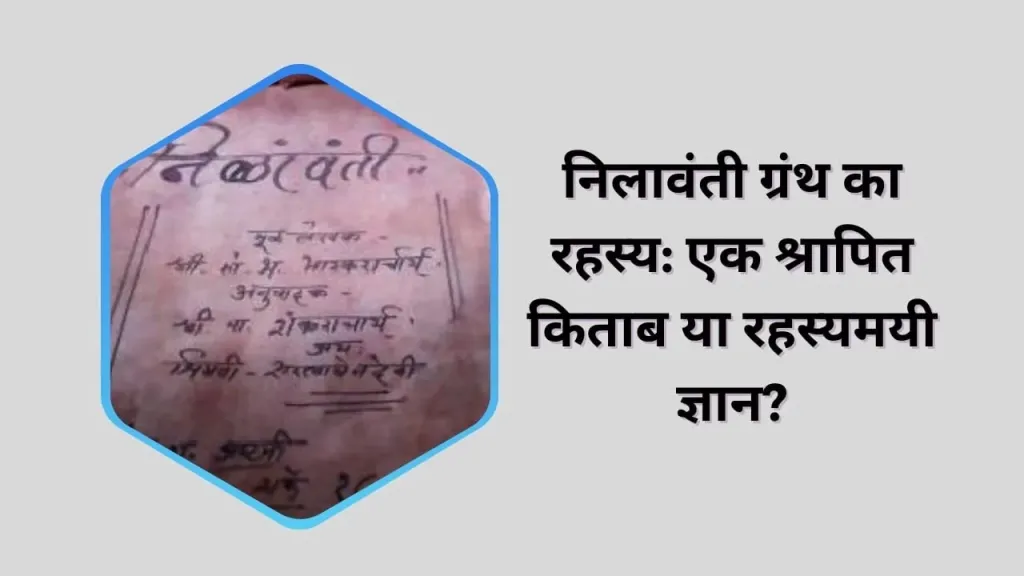 निळांवंती..
मूळ लेखक -
श्री. सं. भ. भास्कराचार्य.
अनुवादक -
श्री. पा. शंकराचार्य.
निलावंती ग्रंथ का
रहस्य: एक श्रापित
किताब या रहस्यमयी
ज्ञान?